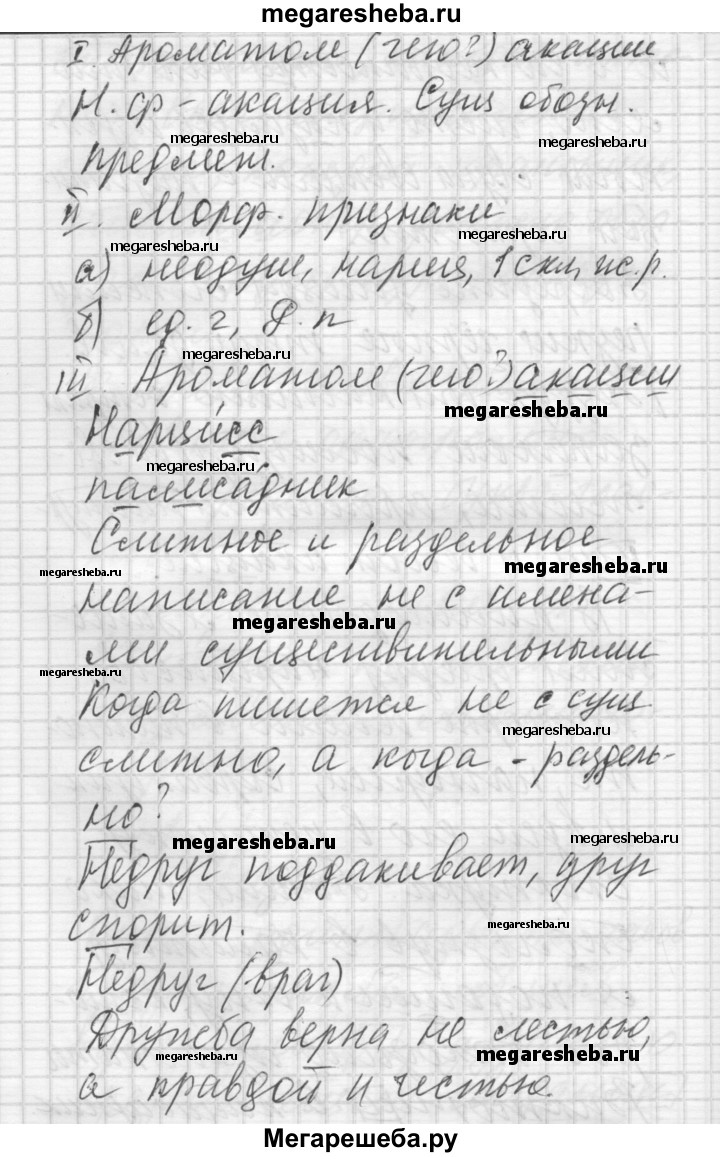 megaresheba.ru
I. Ароматом (чего?) акации.
Н.ф - акация. Сущ обозн.
megaresheba.ru
megaresheba.ru
предмет.
II. Морф. признаки
megaresheba.ru
megaresheba.ru
а) неодуш, нариц, 1 скл, ж.р.
б) ед. ч, Р. п
megaresheba.ru
III. Ароматом (чего?) акации
megaresheba.ru
Нарцисс
megaresheba.ru
палисадник
Слитное и раздельное
megaresheba.ru
megaresheba.ru
написание не с имена-
megaresheba.ru
ми существительными
megaresheba.ru
Когда пишется не с сущ
megaresheba.ru
слитно, а когда - раздель-
но?
megaresheba.ru
megaresheba.ru
Недруг поддакивает, друг
спорит.
megaresheba.ru
Недруг (враг)
Дружба верна не лестью,
megaresheba.ru
megaresheba.ru
а правдой и честью.
Мегарешеба.ру